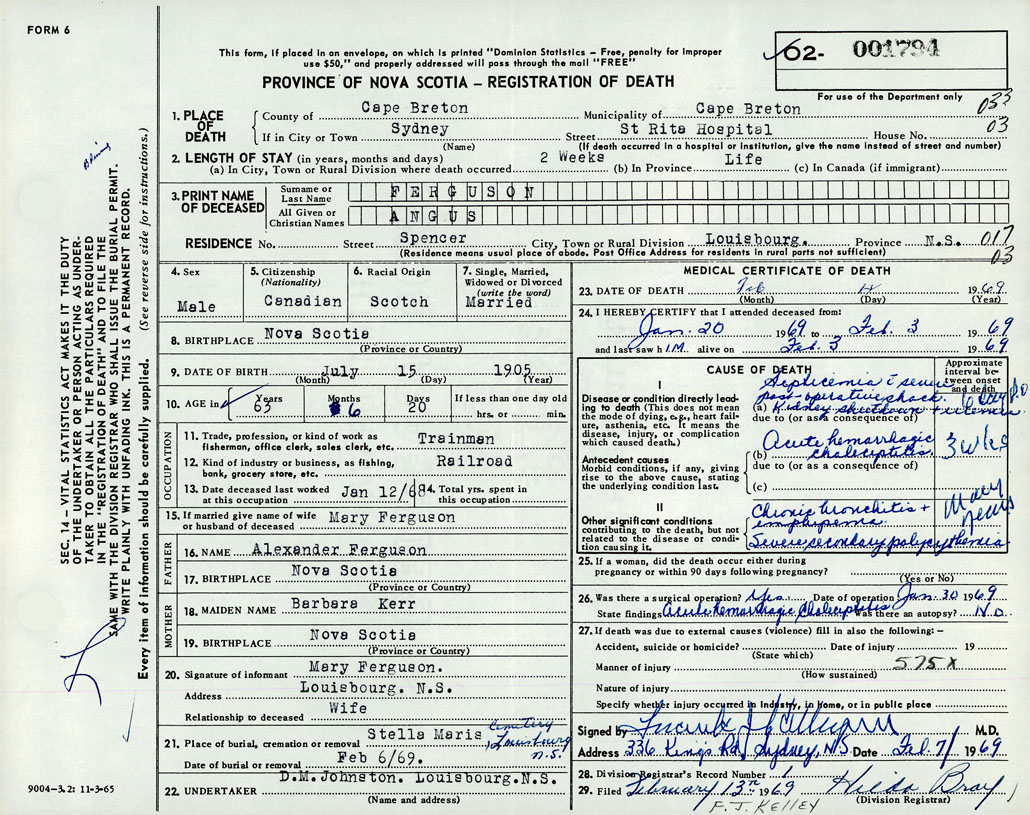 FORM 6
This form, if placed in an envelope, on which is printed "Dominion Statistics – Free, penalty for improper
use $50," and properly addressed will pass through the mail "FREE"
PROVINCE OF NOVA SCOTIA – REGISTRATION OF DEATH
62- 001794
For use of the Department only
033
03
1. PLACE OF DEATH
County of Cape Breton Municipality of Cape Breton
If in City or Town Sydney Street St Rita Hospital House No.
(Name) (If death occurred in a hospital or institution, give the name instead of street and number)
2. LENGTH OF STAY (in years, months and days)
(a) In City, Town or Rural Division where death occurred 2 Weeks (b) In Province Life (c) In Canada (if immigrant)
3. PRINT NAME OF DECEASED
Surname or Last Name FERGUSON
All Given or Christian Names ANGUS
RESIDENCE No. Street Spencer City, Town or Rural Division Louisbourg. Province N.S. 017
(Residence means usual place of abode. Post Office Address for residents in rural parts not sufficient) 03
4. Sex Male
5. Citizenship (Nationality) Canadian
6. Racial Origin Scotch
7. Single, Married, Widowed or Divorced (write the word) Married
8. BIRTHPLACE Nova Scotia
(Province or Country)
9. DATE OF BIRTH July 15 1905
(Month) (Day) (Year)
10. AGE in Years 63 Months 6 Days 20 If less than one day old hrs. or min.
OCCUPATION
11. Trade, profession, or kind of work as fisherman, office clerk, sales clerk, etc. Trainman
12. Kind of industry or business, as fishing, bank, grocery store, etc. Railroad
13. Date deceased last worked at this occupation Jan 12/68
14. Total yrs. spent in this occupation
15. If married give name of wife or husband of deceased Mary Ferguson
FATHER
16. NAME Alexander Ferguson
17. BIRTHPLACE Nova Scotia
(Province or Country)
MOTHER
18. MAIDEN NAME Barbara Kerr
19. BIRTHPLACE Nova Scotia
(Province or Country)
20. Signature of informant Mary Ferguson.
Address Louisbourg. N.S.
Relationship to deceased Wife
21. Place of burial, cremation or removal Stella Maris Cemetery, Louisbourg N.S.
Date of burial or removal Feb 6/69.
22. UNDERTAKER D.M.Johnston. Louisbourg.N.S.
(Name and address)
MEDICAL CERTIFICATE OF DEATH
23. DATE OF DEATH Feb 4 1969
(Month) (Day) (Year)
24. I HEREBY CERTIFY that I attended deceased from:
Jan. 20 1969 to Feb. 3 1969
and last saw h IM alive on Feb. 3 1969
CAUSE OF DEATH
Approximate interval between onset and death
I
Disease or condition directly leading to death (This does not mean the mode of dying, e.g., heart failure, asthenia, etc. It means the disease, injury, or complication which caused death.)
Septicemia c̄ severe
post-operative shock.
(a) Kidney shutdown + uremia 6 days
due to (or as a consequence of)
Antecedent causes
Morbid conditions, if any, giving rise to the above cause, stating the underlying condition last.
Acute hemorrhagic
(b) cholecystitis. 3 wks
due to (or as a consequence of)
(c)
II
Other significant conditions contributing to the death, but not related to the disease or condition causing it.
Chronic bronchitis + Many
emphysema. years
Severe secondary polycythemia
25. If a woman, did the death occur either during pregnancy or within 90 days following pregnancy?
(Yes or No)
26. Was there a surgical operation? Yes Date of operation Jan. 30 1969
State findings Acute hemorrhagic Cholecystitis Was there an autopsy? No
27. If death was due to external causes (violence) fill in also the following: –
Accident, suicide or homicide? Date of injury 19
(State which)
Manner of injury 575X
(How sustained)
Nature of injury
Specify whether, injury occurred in Industry, in Home, or in public place
Signed by M.D.
Address 336 King's Rd, Sydney, N.S. Date Feb. 7/ 1969
28. Division Registrar's Record Number 1
29. Filed February 13th 1969 Hilda Bray
(Division Registrar)
F. J. KELLEY
SEC. 14 – VITAL STATISTICS ACT MAKES IT THE DUTY
OF THE UNDERTAKER OR PERSON ACTING AS UNDER-
TAKER TO OBTAIN ALL THE PARTICULARS REQUIRED
IN THE "REGISTRATION OF DEATH" AND TO FILE THE
SAME WITH THE DIVISION REGISTRAR WHO SHALL ISSUE THE BURIAL PERMIT.
WRITE PLAINLY WITH UNFADING INK. THIS IS A PERMANENT RECORD.
Every item of information should be carefully supplied. (See reverse side for instructions.)
9004–3.2: 11-3-65